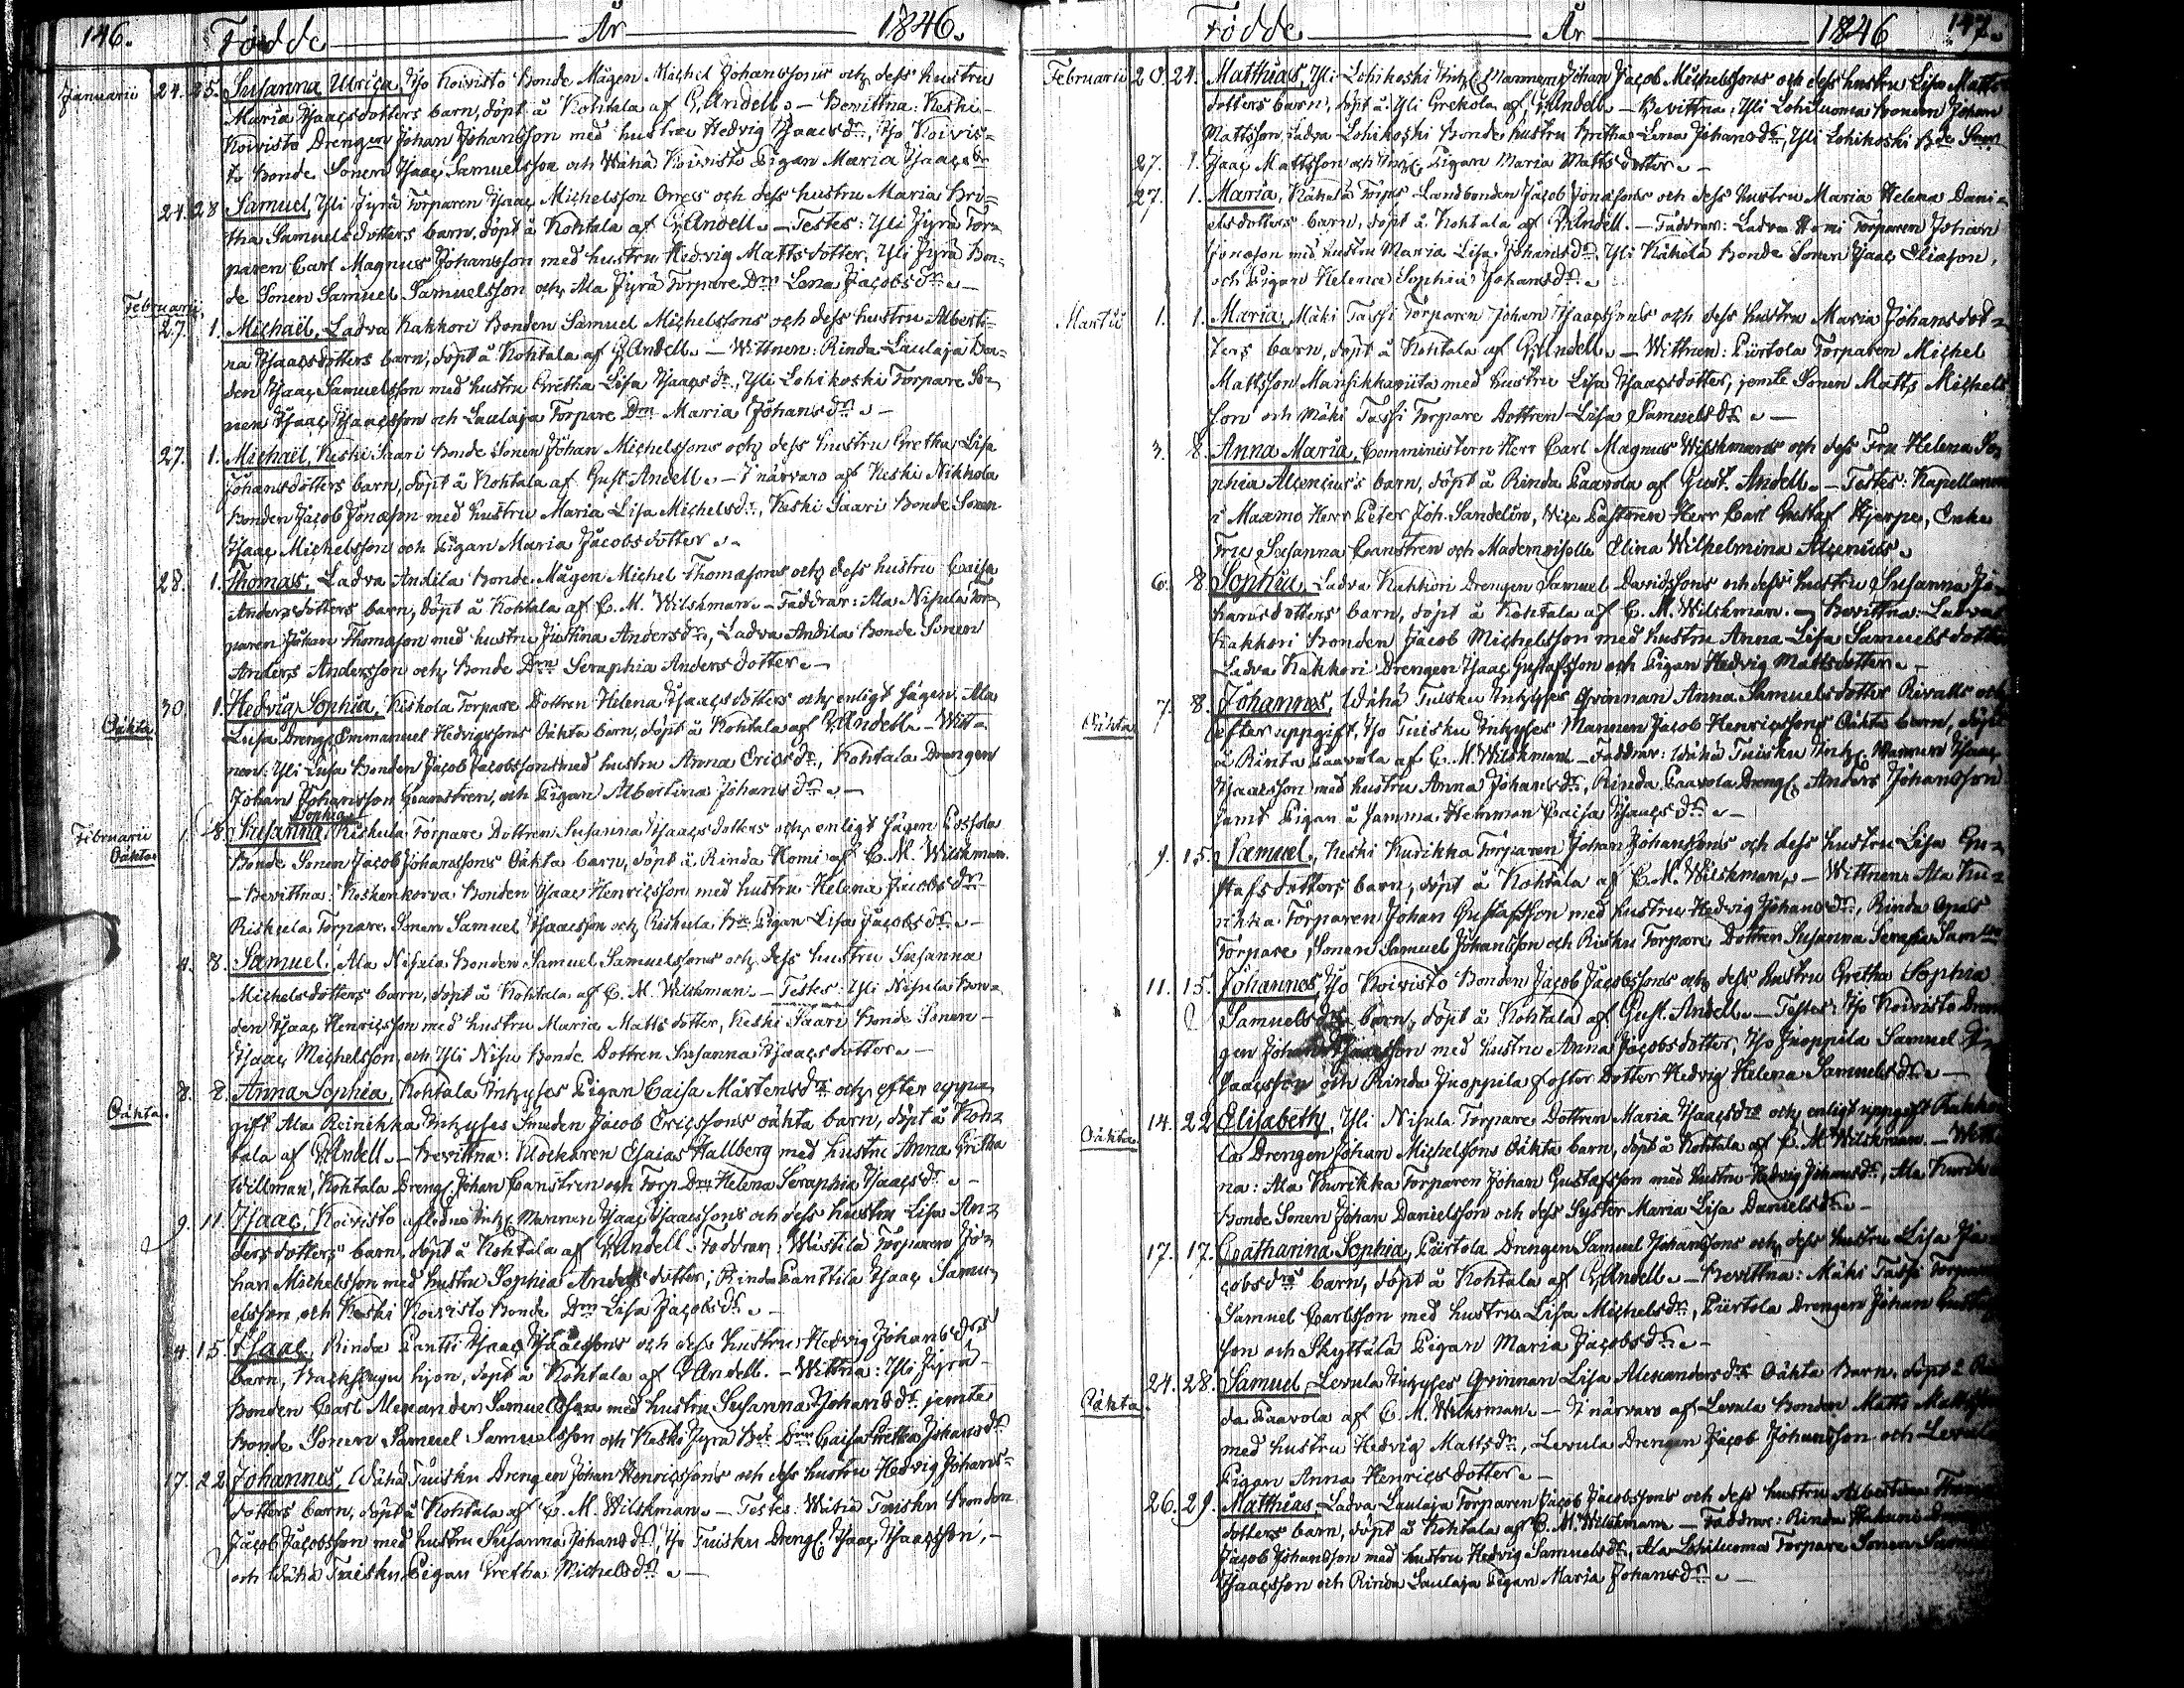 146. Födde År 1846.
Januarii 24. 25. Susanna Ulrica, Iso Koivisto Bonde Mågen Michel Johanssons och dess hustru
Maria Isaacsdotters barn, döpt å Kohtala af G. Andell. – Bevittna: Keski-
Koivisto Drengen Johan Johansson med hustru Hedvig Isaacsdr, Iso Koivis-
to Bonde Sonen Isaac Samuelsson och Wähä Koivisto Pigan Maria Isaacsdr
24. 28 Samuel, Yli Jyrä Torparen Isaac Michelsson Orres och dess hustru Maria Bri-
tha Samuelsdotters barn, döpt å Kohtala af G. Andell. – Testes: Yli Jyrä Tor-
paren Carl Magnus Johansson med hustru Hedvig Mattsdotter, Yli Jyrä Bon-
de Sonen Samuel Samuelsson och Ala Jyrä Torpare Drn Lena Jacobsdr. –
Februarii,
27. 1. Michaël, Ladva Kakkori Bonden Samuel Michelssons och dess hustru Alberti-
na Isaacsdotters barn, döpt å Kohtala af G. Andell. – Wittnen: Rinda Laulaja Bon-
den Isaac Samuelsson med hustru Gretha Lisa Isaacsdr, Yli Lohikoski Torpare So-
nen Isaac Isaacsson och Laulaja Torpare Drn Maria Johansdr. –
27. 1. Michaël, Keski Saari Bonde Sonen Johan Michelssons och dess hustru Gretha Lisa
Johansdotters barn, döpt å Kohtala af Gust. Andell. – I närvaro af Keski Nikkola
Bonden Jacob Jonasson med hustru Maria Lisa Michelsdr, Keski Saari Bonde Sonen
Isaac Michelsson och Pigan Maria Jacobsdotter. –
28. 1. Thomas, Ladva Andila Bonde Mågen Michel Thomasons och dess hustru Caisa
Andersdotters barn, döpt å Kohtala af C. M. Wilskman. – Faddrar: Ala Nisula Tor-
paren Johan Thomason med hustru Justina Andersdr, Ladva Andila Bonde Sonen
Anders Andersson och Bonde Drn Seraphia Andersdotter. –
30. 1. Hedvig Sophia, Kiskola Torpare Dottren Helena Isaacsdotters och enligt sägen Ala
Oäkta Luisa Dreng Emmanuel Hedvigssons Oäkta barn, döpt å Kohtala af G. Andell. – Witt-
nen: Yli Luisa Bonden Jacob Jacobsson med hustru Anna Ericsdr, Kohtala Drengen
Johan Johansson Canstren, och Pigan Albertina Johansdr. –
Sophia
Februarii 1. 8. Susanna, Riskula Torpare Dottren Susanna Isaacsdotters och enligt sägen Lossola
Oäkta Bonde Sonen Jacob Johanssons Oäkta barn, döpt å Rinda Homi af C. M. Wilskman.
– Bevittna: Koskenkorva Bonden Isaac Henricsson med hustru Helena Jacobsdr
Riskula Torpare Sonen Samuel Isaacsson och Riskula Bde Pigan Lisa Jacobsdr. –
4. 8. Samuel, Ala Nisula Bonden Samuel Samuelssons och dess hustru Susanna
Michelsdotters barn, döpt å Kohtala af C. M. Wilskman. – Testes: Yli Nisula Bon-
den Isaac Henricsson med hustru Maria Mattsdotter, Keski Saari Bonde Sonen
Isaac Michelsson och Yli Nisu Bonde Dottren Susanna Isaacsdotter. –
8. 8. Anna Sophia, Kohtala Inhyses Pigan Caisa Mårtensdr och efter upp-
Oäkta. gift Ala Reinikka Inhyses Smeden Jacob Ericssons oäkta barn, döpt å Koh-
tala af G. Andell. – Bevittna: Klockaren Esaias Hallberg med hustru Anna Gretha
Willman, Kohtala Dreng Johan Canstren och Torp. Drn Helena Seraphia Isaacsdr. –
9. 11. Isaac, Koivisto aflidne Inh. Mannen Isaac Isaacssons och dess hustru Lisa An-
dersdotters barn, döpt å Kohtala af G. Andell. Faddrar: Wästilä Torparen Jo-
han Michelsson med hustru Sophia Andersdotter, Rinda Panttila Isaac Samu-
elsson, och Keski Koivisto Bonde Drn Lisa Jacobsdr. –
4. 15. Isaac, Rinda Pantti Isaac Isaacssons och dess hustru Hedvig Johansdrs
barn, Backstugu hjon, döpt å Kohtala af G. Andell. – Wittna: Yli Jyrä
Bonden Carl Alexander Samuelsson med hustru Susanna Johansdr jemte
Bonde Sonen Samuel Samuelsson och Keski Jyrä Bde Drn Caisa Gretha Johansdr
17. 22. Johannes, Wähä Tuisku Drengen Johan Henricssons och dess hustru Hedvig Johans-
dotters barn, döpt å Kohtala af C. M. Wilskman. – Testes: Wähä Tuisku Bonden
Jacob Jacobsson med hustru Susanna Johansdr, Iso Tuisku Dreng. Isaac Isaacsson, –
och Wähä Tuisku Pigan Gretha Michelsdr. –
Födde År 1846 147.
Februarii 20. 24. Matthias, Yli Lohikoski Inh. Mannen Johan Jacob Michelssons och dess hustru Lisa Matts-
dotters barn, döpt å Yli Grekola af G. Andell. – Bevittna: Yli Lohiluoma Bonden Johan
Mattsson, Ladva Lohikoski Bonde hustru Britha Lena Johansdr, Yli Lohikoski Bde Sonen
27. 1. Isaac Mattsson och Inh. Pigan Maria Mattsdotter. –
27. 1. Maria, Käkelä Torps Landbonden Jacob Jonassons och dess hustru Maria Helena Dani-
elsdotters barn, döpt å Kohtala af G. Andell. – Faddrar: Ladva Homi Torparen Johan
Jonason med hustru Maria Lisa Johansdr, Yli Käkelä Bonde Sonen Isaac Eliason,
och Pigan Helena Sophia Johansdr. –
Martii 1. 1. Maria, Mäki Tassi Torparen Johan Isaacssons och dess hustru Maria Johansdot-
ters barn, döpt å Kohtala af G. Andell. – Wittnen: Piirtola Torparen Michel
Mattsson Mansikkaniita med hustru Lisa Isaacsdotter, jemte Sonen Matts Michels
son och Mäki Tassi Torpare Dottren Lisa Samuelsdr. –
3. 8. Anna Maria, Comministern Herr Carl Magnus Wilskmans och dess Fru Helena So-
phia Alcenius's barn, döpt å Rinda Paavola af Gust. Andell. – Testes: Kapellanen
i Maxmo Herr Peter Joh. Sandelin, Vice Pastoren Herr Carl Gustaf Hjerpe, Enke
Fru Susanna Canstren och Mademoiselle Elina Wilhelmina Alcenius.
6. 8. Sophia, Ladva Kakkori Drengen Samuel Davidssons och dess hustru Susanna Jo-
hansdotters barn, döpt å Kohtala af C. M. Wilskman. – Bevittna: Ladva
Kakkori Bonden Jacob Michelsson med hustru Anna Lisa Samuelsdotter
Ladva Kakkori Drengen Isaac Gustafsson och Pigan Hedvig Mattsdotter. –
7. 8. Johannes, Wähä Tuisku Inhyses Qvinnan Anna Samuelsdotter Rivalls och
Oäkta efter uppgift, Iso Tuisku Inhyses Mannen Jacob Henricssons Oäkta barn, döpt
å Rinta Paavola af C. M. Wilskman – Faddrar: Wähä Tuisku Inh. Mannen Isaac
Isaacsson med hustru Anna Johansdr, Rinda Paavola Dreng. Anders Johansson
samt Pigan å samma Hemman Caisa Isaacsdr. –
9. 15. Samuel, Keski Kurikka Torparen Johan Johanssons och dess hustru Lisa Gu-
stafsdotters barn, döpt å Kohtala af C. M. Wilskman, – Wittnen: Ala Ku-
rikka Torparen Johan Gustafsson med hustru Hedvig Johansdr, Rinda
Torpare Sonen Samuel Johansson och Risku Torpare Dottren Susanna Serafia
11. 15. Johannes, Iso Koivisto Bonden Jacob Jacobssons och dess hustru Gretha Sophia
Samuelsdrs barn, döpt å Kohtala af Gust. Andell. – Testes: Iso Koivisto Dren
gen Johan Isaacsson med hustru Anna Jacobsdotter, Iso Juoppila Samuel I-
saacsson och Rinda Juoppila Foster Dotter Hedvig Helena Samuelsdr. –
14. 22 Elisabeth, Yli Nisula Torpare Dottren Maria Isaacsdrs och enligt uppgift
Oäkta la Drengen Johan Michelssons Oäkta barn, döpt å Kohtala af C. M. Wilskman. – Witt
na: Ala Kurikka Torparen Johan Gustafsson med hustru Hedvig Johansdr, Ala Kurikka
Bonde Sonen Johan Danielsson och dess Syster Maria Lisa Danielsdr. –
17. 17. Catharina Sophia, Piirtola Drengen Samuel Johanssons och dess hustru Lisa Ja-
cobsdrs barn, döpt å Kohtala af G. Andell. – Bevittna: Mäki Tassi Torparen
Samuel Carlsson med hustru Lisa Michelsdr, Piirtola Drengen Johan Gustafs
son och Skyttälä Pigan Maria Jacobsdr. –
24. 28. Samuel, Levula Inhyses Qvinnan Lisa Alexandersdrs Oäkta Barn, döpt å Rin
Oäkta da Paavola af C. M. Wilksman. – I närvaro af Levula Bonden Matts Mattsson
med hustru Hedvig Mattsdr, Levula Drengen Jacob Johansson och Levula
Pigan Anna Henricsdotter. –
26. 29. Matthias, Ladva Laulaja Torparen Jacob Jacobssons och dess hustru Albertina
dotters barn, döpt å Kohtala af C. M. Wilskman – Faddrar: Rinda
Jacob Johansson med hustru Hedvig Samuelsdr, Ala Lohiluoma Torpare Sonen
Isaacsson och Rinda Laulaja Pigan Maria Johansdr. –